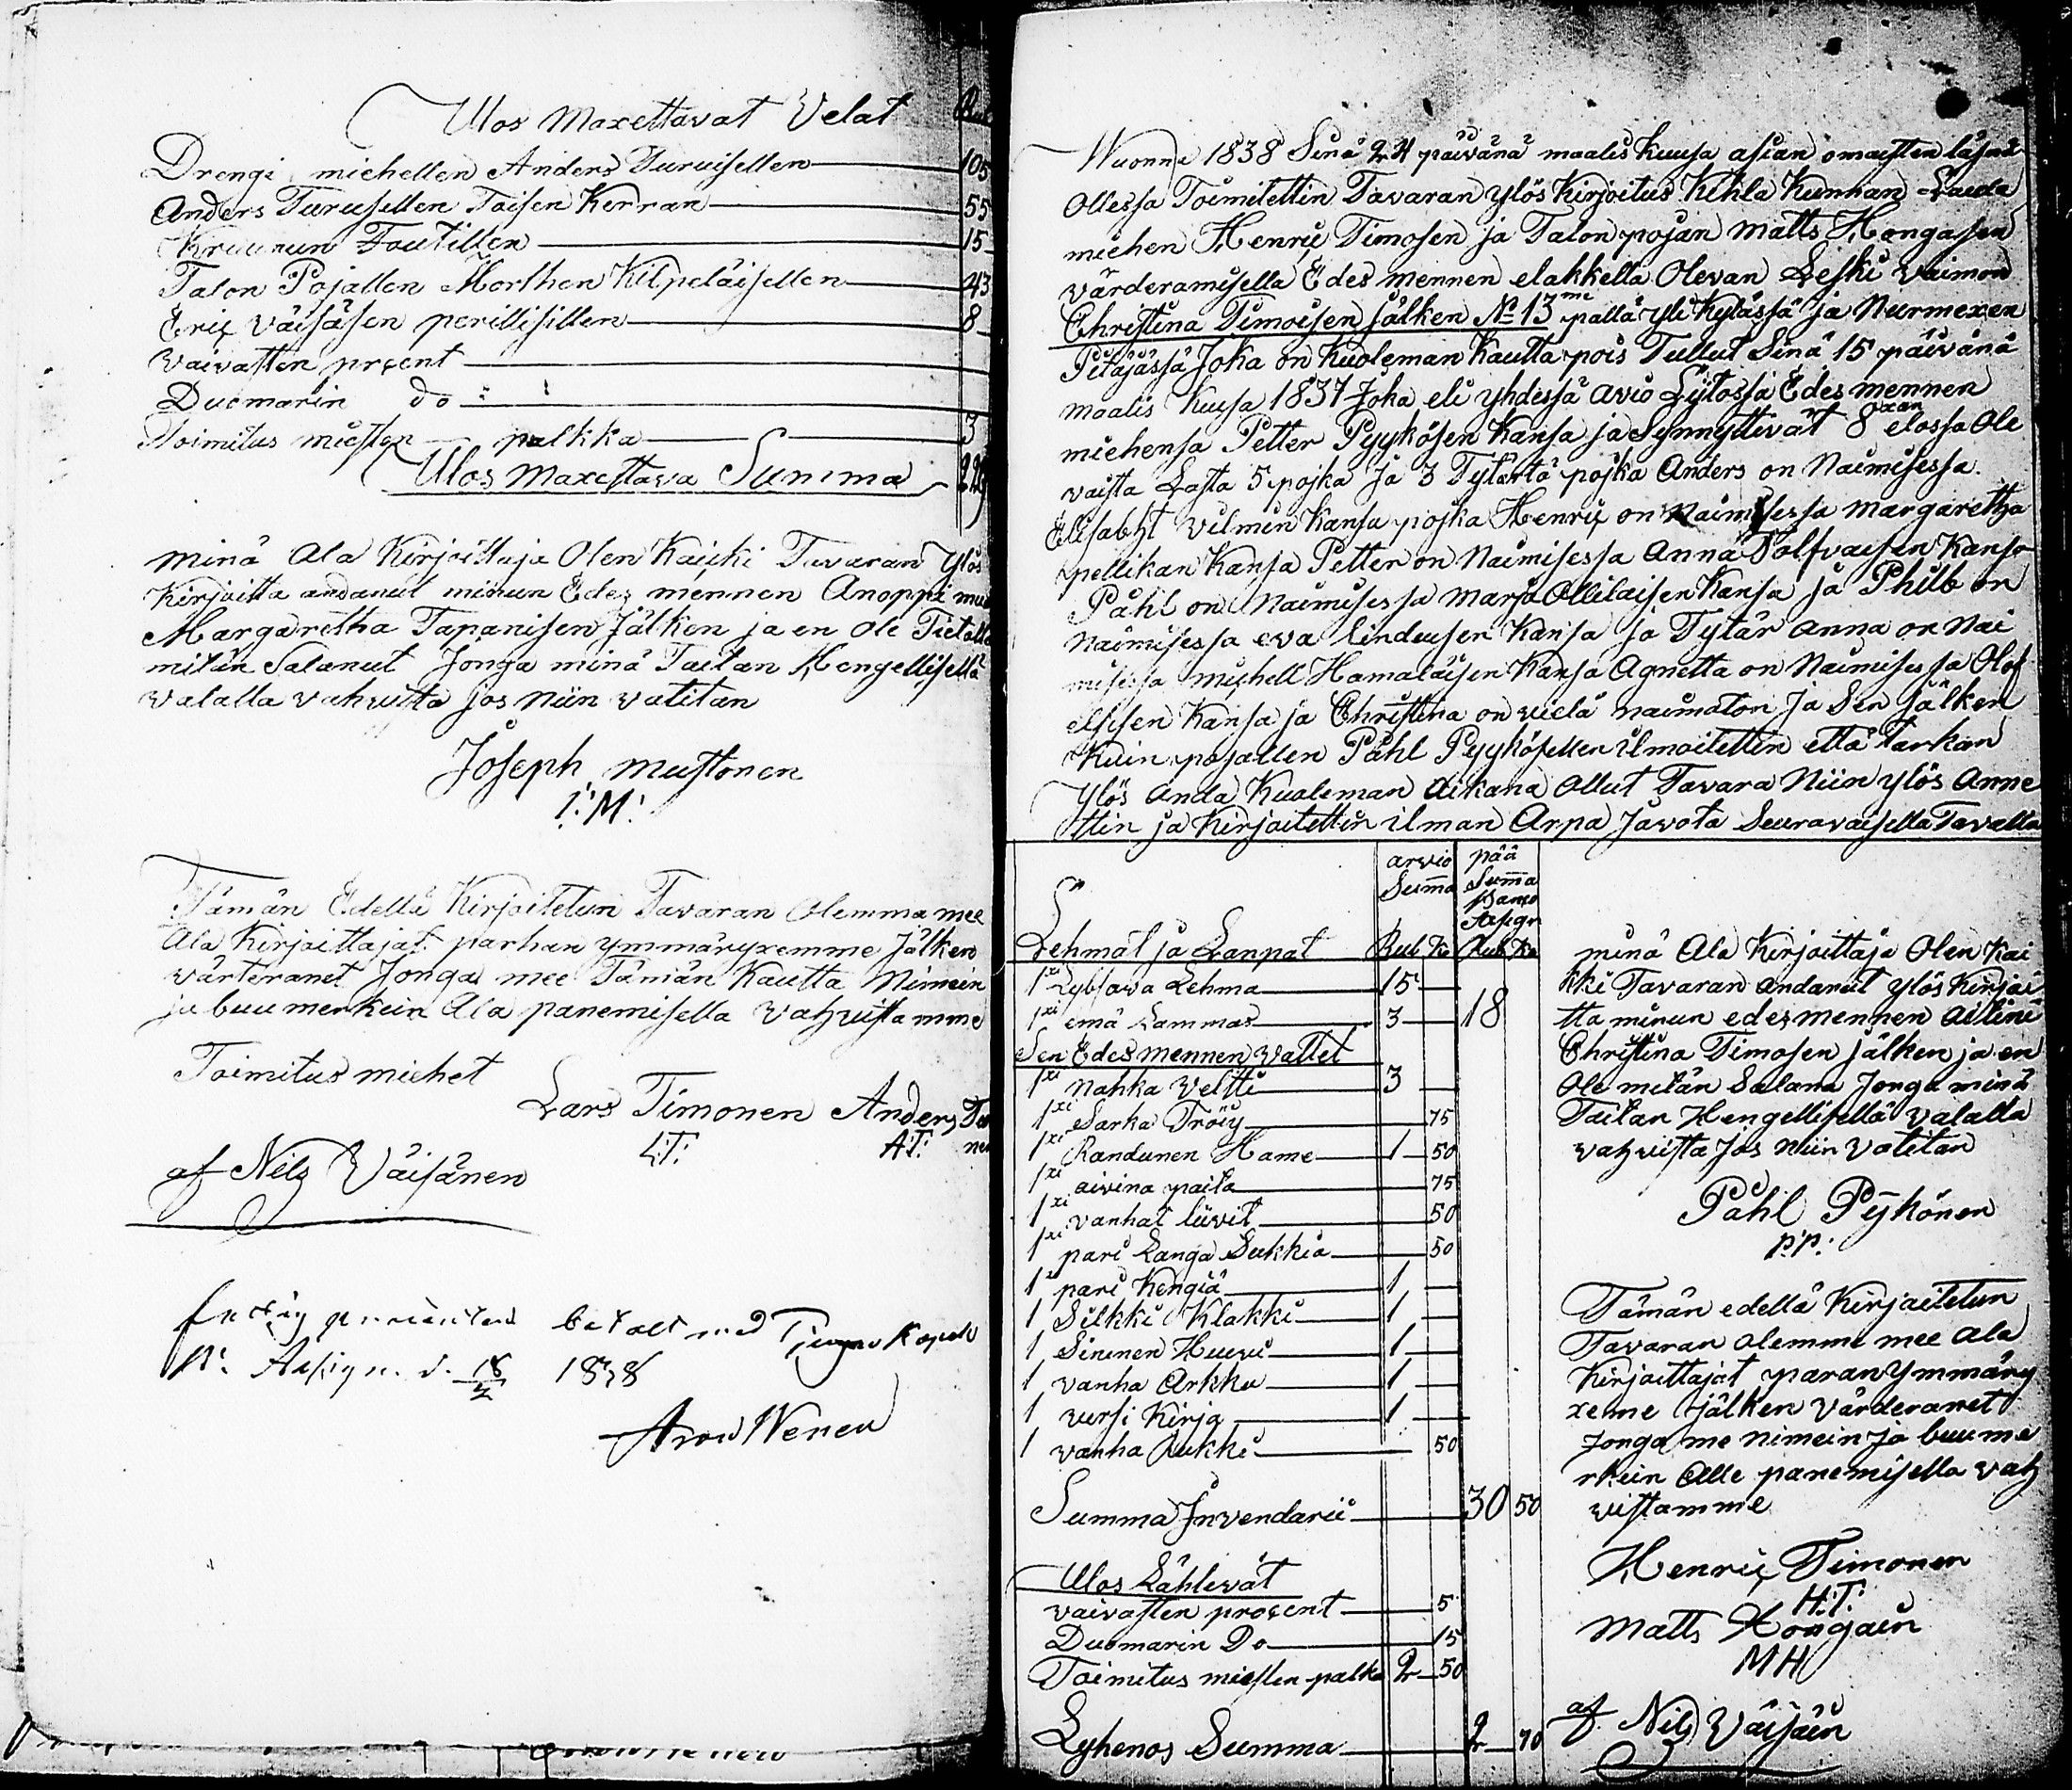 Ulos Maxettavat Velat
Drengi miehellen Anders Turuisellen 105
Anders Turusellen Toisen Kerran 55
Kruunun Foutillen 15
Talon Pojallen Morthen Kilpeläisellen 43
Eric Väisäsen perillisillen 8
vaivasten prçent
Duomarin do
Toimitus miesten palkka 3
Ulos Maxettava Summa 229
minä Ala Kirjoittaja Olen Kaicki Tavaran Ylös
Kirjoitta andanut minun Edes mennen Anoppi
Margaretha Tapanisen Jälken ja en Ole
mitän Salanut Jonga minä Taitan Hengellisellä
valalla vahvista Jos Niin vatitan
Joseph Mustonen
I:M:
Tämän Edellä Kirjoitetun Tavaran Olemma mee
Ala Kirjoittajat parhan ymmäryxemme Jälken
värteranet Jonga mee Tämän Kautta Nimein
ja buumerkein Ala panemisella vahvistamme
Toimitus miehet
Lars Timonen Anders
L:T: A:T:
af Nils Väisänen
betalt med Kopek
Assign. d. 18 1838
Wuonna 1838 Sinä 24 päivänä maalis Kuusa asian omaisten läsnä
Ollessa Toimitettin Tavaran ylös Kirjoitus Kihla Kunnan Lauda
miehen Henric Timosen ja Talon pojan Matts Hongasen
värderamisella Edes mennen elakkella Olevan Leski vaimon
Christina Timoisen Jälken No 13me pallä yli Kylässä ja Nurmexen
Pitäjässä Joka on Kuoleman Kautta pois Tullut Sinä 15 päivänä
maalis Kuusa 1837 Joka eli yhdessä avio Lytossa Edes mennen
miehensä Petter Pyykösen Kansa ja Synnyttivät 8xan elossa Ole
vaista Lasta 5 pojka Ja 3 Tytärtä pojka Anders on Naimisessa
Elisabht Vilmin Kansa pojka Henric on Naimisessa Margaretha
pellikan Kansa Petter on Naimisessa Anna Kansa
Påhl on Naimisessa Marja Ollilaisen Kansa ja Philb on
Naimisessa eva Lindusen Kansa ja Tytär Anna on Nai
misessa Michell Hamaläisen Kansa Agnetta on Naimisessa Olof
Kansa ja Christina on vielä naimaton Ja Sen Jälken
Kuin pojallen Påhl Pyykösellen ilmoitettin että tarkan
Ylös Anda Kuoleman Aikana Ollut Tavara Niin ylös Anne
ttin ja Kirjoitettin ilman Arpa Javota Seuravaisella Tavalla
arvio Summa pää Summa Banco Assigr
Lehmät ja Lanpat Rub Ko Rub Ko
1xi Lybsava Lehma 15
1xi emä Lammas 3 18
Sen Edesmennen vattet
1xi Nahka Veltti 3
1xi Sarka Tröiy 75
1xi Randunen Hame 1 50
1xi aivina paita 75
1xi vanhat liivit 50
1xi pari Langa Sukkia 50
1 pari Kengiä 1
1 Silkki Klakki 1
1 Sininen Huivi 1
1 vanha Arkku 1
1 virsi Kirja 1
1 vanha Rukki 50
Summa Invendarii 30 50
Ulos Lähtevät
vaivasten proçent 5
Duomarin Do 15
Toimitus miesten palka 2 50
Lyhenos Summa 2 70
minä Ala Kirjoittaja Olen Kai
kki Tavaran Andanut ylös Kirjoi
tta minun edesmennen Aitini
Christina Timosen Jälken ja en
Ole mitän Salana Jonga minä
Taitan Hengellisellä valalla
vahvista Jos Niin Vatitan
Påhl Pÿkönen
P:P:
Tämän edellä Kirjoitetun
Tavaran Olemme mee Ala
Kirjoittajat paran Ymmäry
xeme Jälken Värderanet
Jonga me nimein ja buume
rkein Alle panemisella vah
vistamme
Henric Timonen
H:T:
Matts Hongain
MH
af Nils Väisäin